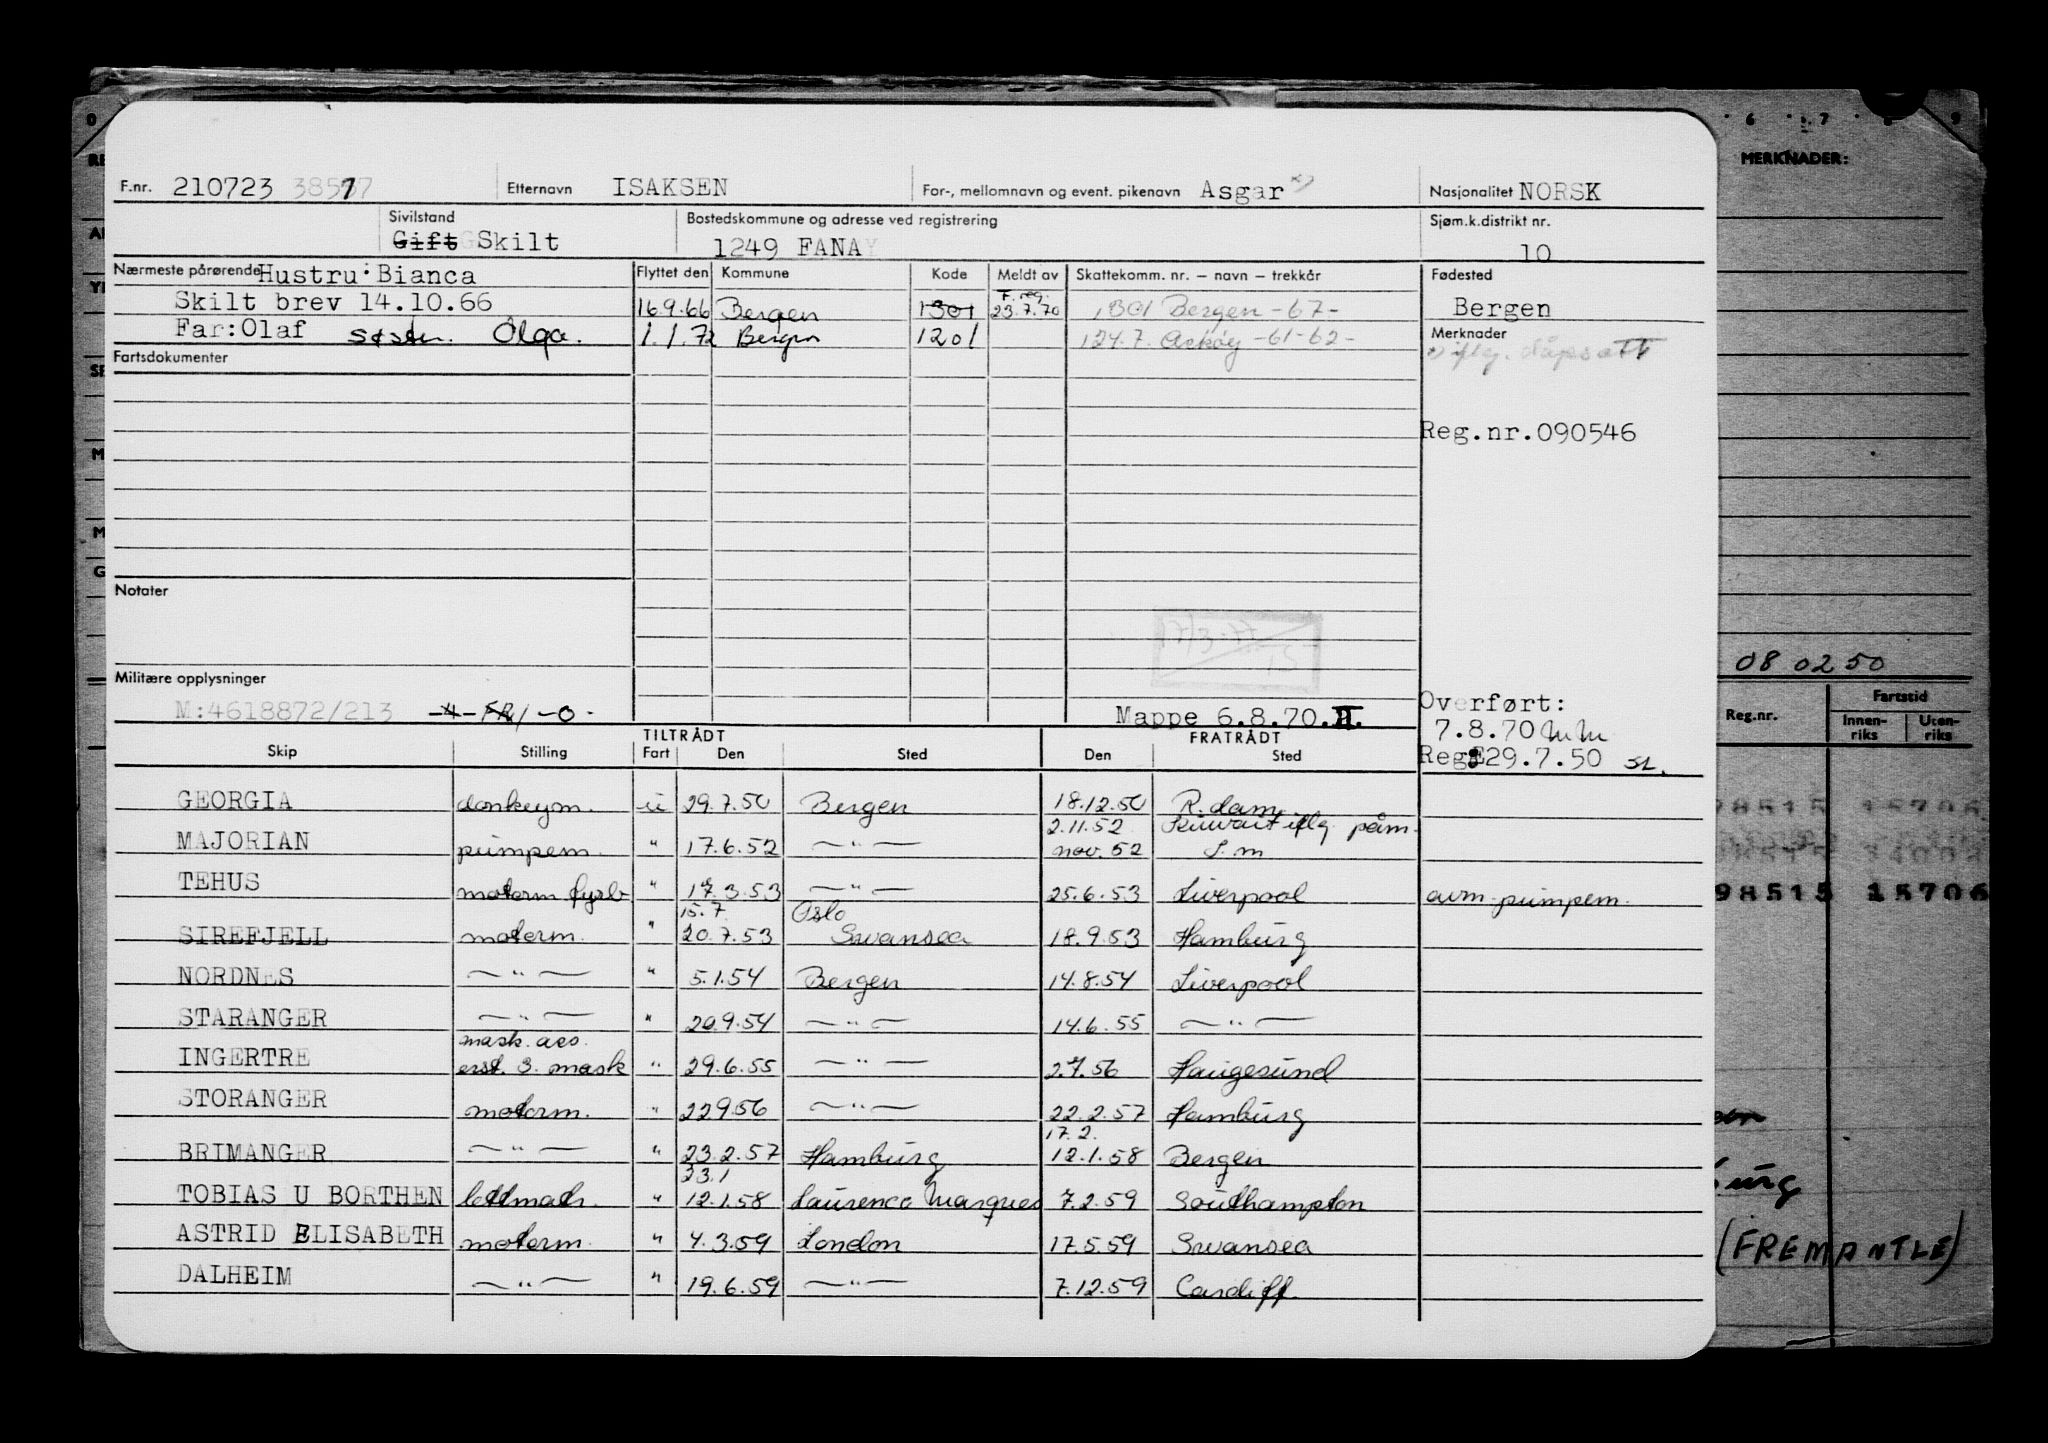 F.nr. 210723 38517 Etternavn ISAKSEN For-, mellomnavn og event. pikenavn Asgar x) Nasjonalitet NORSK
Sivilstand Bostedskommune og adresse ved registrering Sjøm.k.distrikt nr.
Gift Skilt 1249 FANA 10
Nærmeste pårørende Hustru: Bianca Flyttet den Kommune Kode Meldt av Skattekomm. nr. – navn – trekkår Fødested
Skilt brev 14.10.66 16.9.66 Bergen 1301 F.reg. 23.7.70 1301 Bergen -67- Bergen
Far:Olaf søster. Olga. 1.1.72 Bergen 1201 1247. Askøy -61-62- Merknader
Fartsdokumenter x) iflg. dåpsatt
Reg.nr.090546
Notater
Militære opplysninger
M:4618872/213 Mappe 6.8.70. Overført:
7.8.70
Reg 29.7.50
TILTRÅDT FRATRÅDT
Skip Stilling Fart Den Sted Den Sted
GEORGIA donkeym. u 29.7.50 Bergen 18.12.50 R.dam
MAJORIAN pumpem. " 17.6.52 —"— 2.11.52 nov. 52 iflg. påm. S.m
TEHUS motorm fyrb " 17.3.53 —"— 25.6.53 Liverpool avm. pumpem.
SIREFJELL motorm. " 15.7. 20.7.53 Oslo Swansea 18.9.53 Hamburg
NORDNES —"— " 5.1.54 Bergen 14.8.54 Liverpool
STARANGER —"— " 20.9.54 —"— 14.6.55 —"—
INGERTRE mask. ass. erst. 3. mask " 29.6.55 —"— 2.7.56 Haugesund
STORANGER motorm. " 22.9.56 —"— 22.2.57 Hamburg
BRIMANGER —"— " 23.2.57 Hamburg 17.2. 12.1.58 Bergen
TOBIAS U BORTHEN lettmatr. " 23.1 12.1.58 Laurenco Marques 7.2.59 Southampton
ASTRID ELISABETH motorm. " 4.3.59 London 17.5.59 Swansea
DALHEIM —"— " 19.6.59 —"— 7.12.59 Cardiff.
6 7 8 9
MERKNADER:
08 02 50
Reg.nr. Fartstid
Innen-riks Uten-riks
98515 15706
(FREMANTLE)